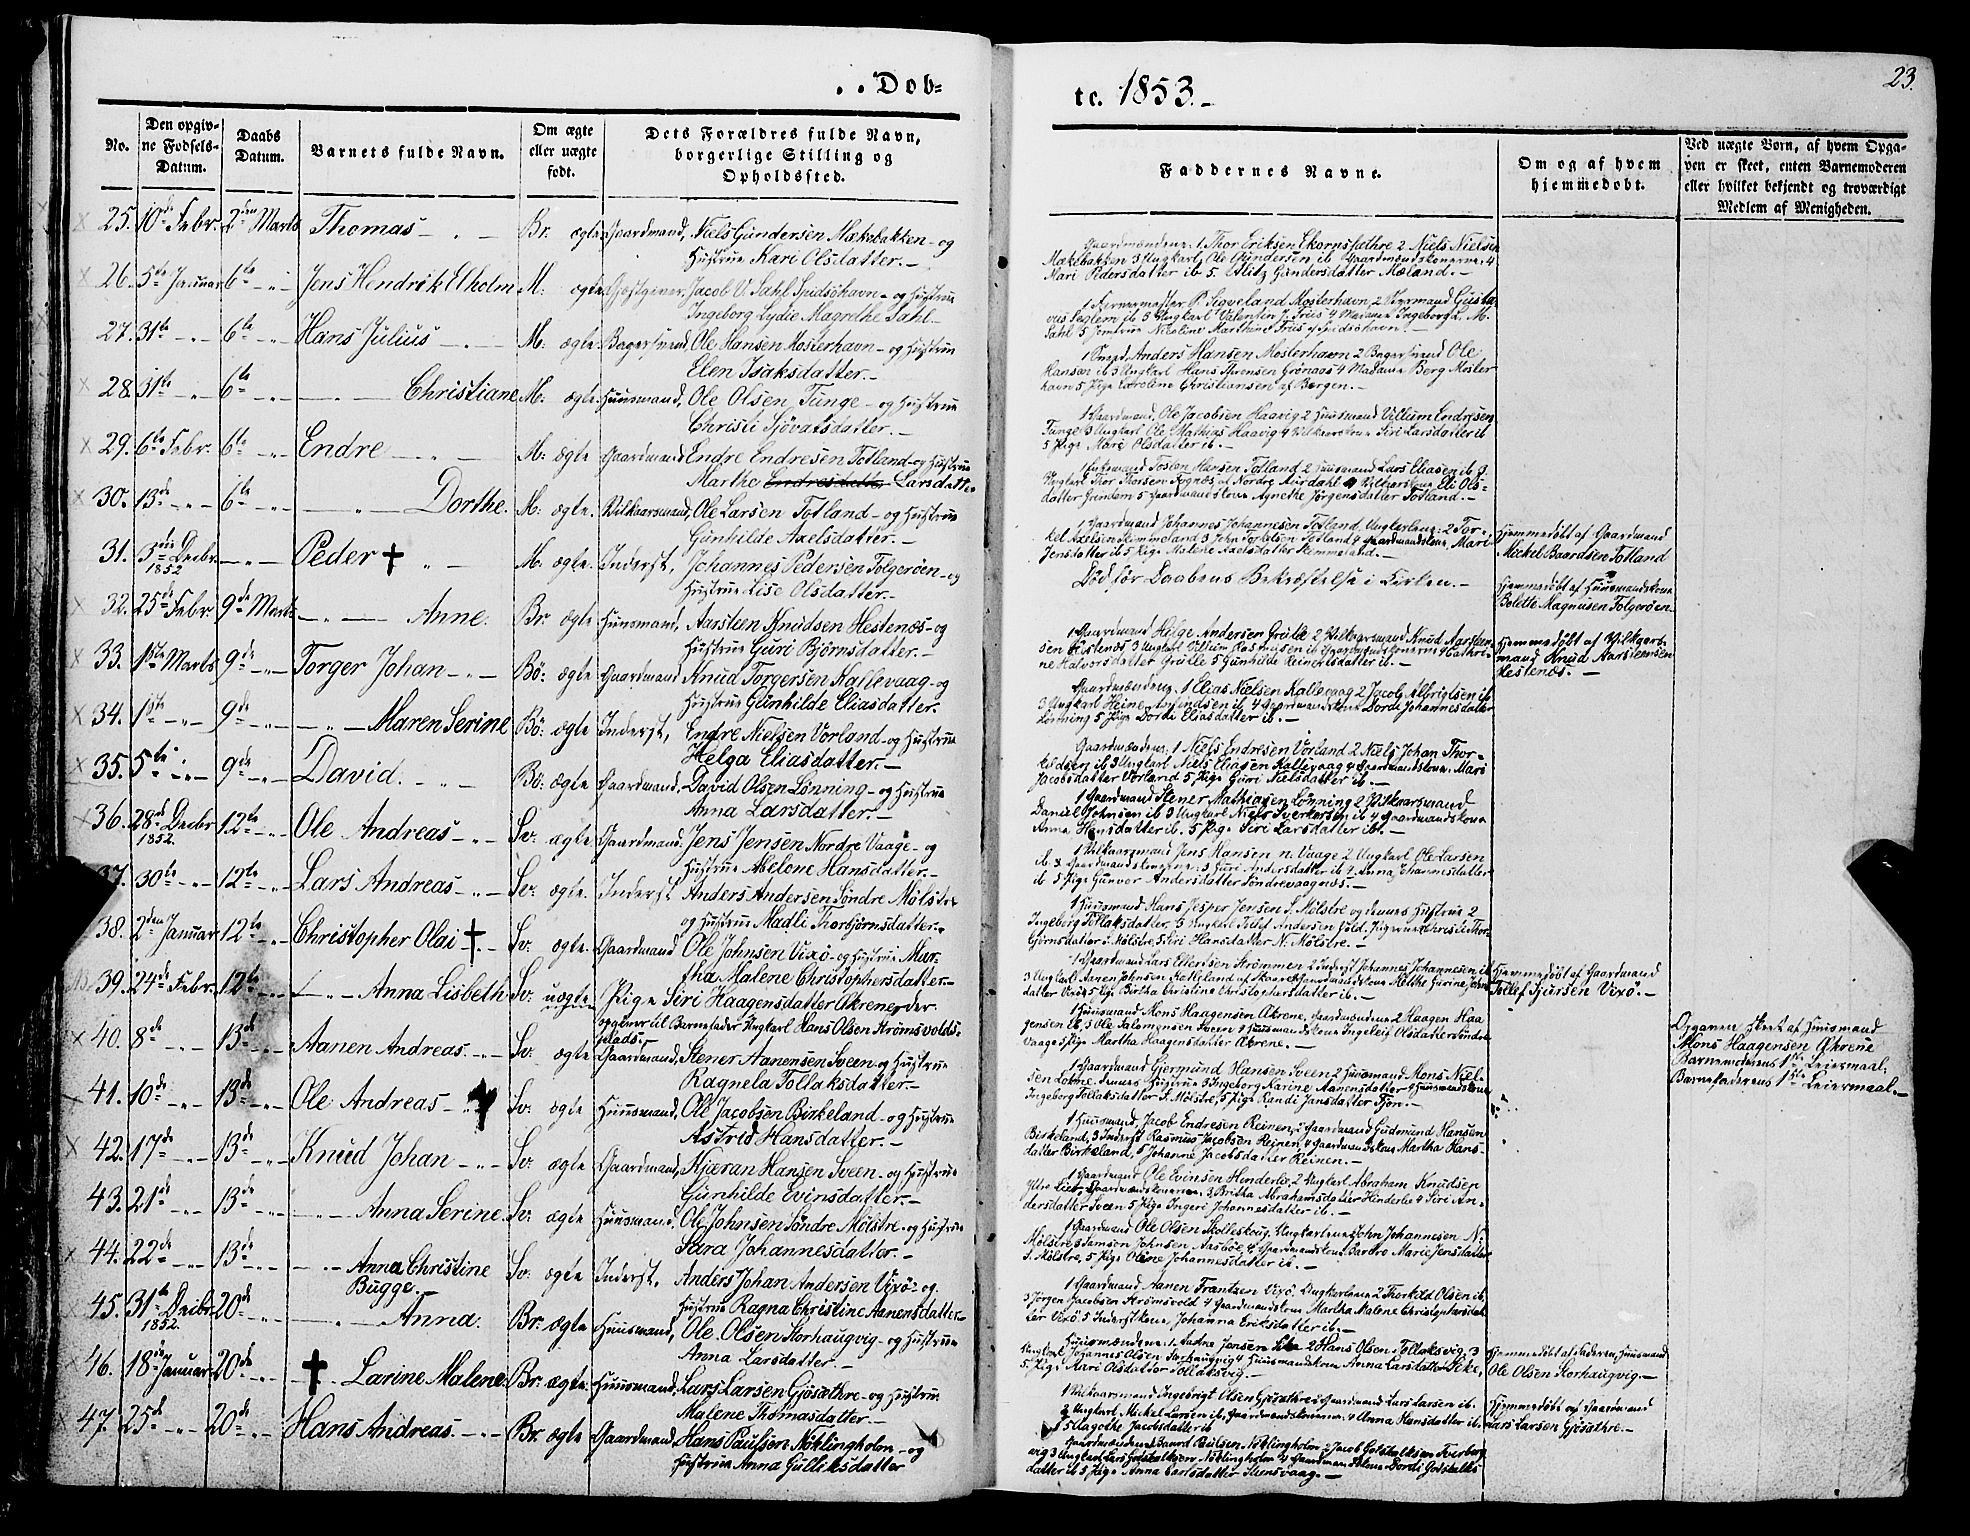 . . Dob=
No.
Den opgiv-
ne Fodsels-
Datum.
Daabs
Datum.
Barnets fulde Navn.
Om ægte
eller uægte
fodt.
Dets Forældres fulde Navn,
borgerlige Stilling og
Opholdssted.
25. 10de Febr. 2den Marts Thomas — „ — Br. ægte Gaardmand, Niels Gundersen Mækebakken - og
Hustrue Kari Olsdatter. —
26. 5te Januar 6te - „ - Jens Hendrik Elholm M: ægte Gjæstgiver, Jacob V. Sahl Spidsöhavn - og Hustrue
Ingeborg Lydie Magrethe Sahl —
27. 31te - „ - 6te - „ - Hans Julius — „ — M: ægte Bagersvend Ole Hansen Mosterhavn - og Hustrue
Elen Isaksdatter. —
28. 31te - „ - 6te - „ - — „ — Christiane M: ægte Huusmand, Ole Olsen, Tunge - og Hustrue
Christi Sjövatsdatter. —
29. 6te Febr. 6te - „ - Endre — „ — M: ægte Gaardmand Endre Endresen Totland - og Hustrue
Marthe Endresdatter Larsdatter
30. 13de - „ - 6te - „ - — „ — Dorthe. M: ægte. Vilkaarsmand, Ole Larsen Totland - og Hustrue
Gunhilde Axelsdatter. —
31. 3die Decbr. - „ - Peder † „ — M: ægte. Inderst, Johannes Pedersen Folgeröen - og
1852
Hustrue Lise Olsdatter. —
32. 25de Febr. 9de Marts — „ — Anne. Br. ægte Huusmand, Aarstien Knudsen Hestenæs - og
Hustrue Guri Bjørnsdatter. —
33. 1ste Marts 9de - „ - Torger Johan - „ - Bö: ægte Gaardmand Knud Torgersen Kallevaag - og
Hustrue Gunhilde Eliasdatter.
34. 1ste - „ - 9de - „ - — „ — Maren Serine Bö: ægte Inderst, Endre Nielsen Vorland - og Hustrue
Helga Eliasdatter. —
35. 5te - „ - 9de - „ - David. — „ — Bö: ægte Gaardmand, David Olsen Lønning - og Hustrue
Anna Larsdatter. —
36. 28de Decbr 12te - „ - Ole Andreas - „ - Sv: ægte Gaardmand. Jens Jensen Nordre Vaage - og
1852.
Hustrue Abelone Hansdatter. —
37. 30te - „ - 12te - „ - Lars Andreas - „ - Sv: ægte Inderst Anders Andersen Söndre Mølstre
og Hustrue Madli Thorbjörnsdatter. —
38. 2den Januar 12te - „ - Christopher Olai † - Sv. ægte. Gaardmand Ole Johnsen Vixö - og Hustrue Mar-
tha Malene Christophersdatter. —
39. 24de Febr. 12te - „ - — „ — Anna Lisbeth Sv: uægte Pige Siri Haagensdatter Økrene, der
opgiver til Barnefader Ungkarl Hans Olsen Strömsvolds-
plads.
40. 8de - „ - 13de - „ - Aanen Andreas. - „ - Sv: ægte Gaardmand, Stener Aanensen Sveen - og Hustrue
Ragnela Tollaksdatter. —
41. 10de - „ - 13de - „ - Ole Andreas - „ Sv: ægte Huusmand, Ole Jacobsen Birkeland - og Hustrue
Astrid Hansdatter. —
42. 17de - „ - 13de - „ - Knud Johan - „ - Sv: ægte Gaardmand, Kjæran Hansen Sveen - og Hustrue
Gunhilde Evinsdatter. —
43. 21de - „ - 13de - „ - — „ — Anna Serine. Sv: ægte Huusmand, Ole Johnsen Söndre Mølstre - og Hustrue
Sara Johannesdatter. —
44. 22de - „ - 13de - „ - — „ — Anna Christine Sv: ægte Inderst, Anders Johan Andersen Vixö - og
Bugge. —
Hustrue Ragna Christine Aanensdatter —
45. 31te Decbr 20de — „ — Anna. Br. ægte Huusmand, Ole Olsen Storhaugvig - og Hustrue
1852.
Anna Larsdatter. —
46. 18de Januar 20de † Larine Malene. Br. ægte. Huusmand, Lars Larsen Gjösæthre - og Hustrue
Malene Thomasdatter. —
47. 25de - „ - 20de - „ - Hans Andreas. - „ - Br. ægte Gaardmand Hans Paulson Nöklingholm - og
Hustrue Anna Gulliksdatter
te. 1853. —
23.
Faddernes Navne.
Om og af hvem
hjemmedobt.
Ved uægte Born, af hvem Opga-
ven er skeet, enten Barnemoderen
eller hvilket bekjendt og troværdigt
Medlem af Menigheden.
Gaardmændene: 1 Thor Eriksen Ekornsæthre 2 Niels Nielsen
Mækebakken 3 Ungkarl, Ole Gundersen, ib Gaardmandskonerne: 4
Mari Pedersdatter ib 5. Alitz Gundersdatter Mæland. —
Sahl 5 Jomfrue Nicoline Marthine Friis af Spidsöhavn. —
Hansen ib 3 Ungkarl Hans Sørensen Grönaas 4 Madame Berg Moster-
havn 5 Pige Karoline Christiansen af Bergen. —
1 Gaardmand, Ole Jacobsen Haavig 2 Huusmand Villum Endresen
Tunge 3 Ungkarl Ole Mathias Haavig 4 Vilkaarskone Siri Larsdatter ib
5 Pige Mari Olsdatter ib. —
datter Grindem 5 Gaardmandskone Agnethe Jörgensdatter Totland. —
1 Gaardmand Johannes Johannesen Totland, Ungkarlene: 2 Tor-
kel Axelsen Hemmeland 3 John Torkelsen Totland 4 Gaardmandskone Mari
Jensdatter ib 5 Pige Malene Axelsdatter Hemmeland. —
Död för Daabens Bekræftelse i Kirken. —
Hjemmedöbt af Gaardmand
Mickel Baardsen Totland
Hjemmedöbt af Huusmandskone
Bolette Magnusen Folgeröen
1 Gaardmand Helge Andersen Grutle 2 Vilkaarsmand Knud Aarstien-
sen Hestenæs 3 Ungkarl Villum Rasmusen ib Gaardmandskonerne 4 Cathri-
ne Halvorsdatter Grutle 5 Gunhilde Reinertsdatter ib. —
Hjemmedöbt af Vilkaars-
mand Knud Aarstiensen
Hestenæs. —
Gaardmændene, 1 Elias Nielsen Kallevaag 2 Jacob Albrigtsen ib
3 Ungkarl Heine Amundsen ib, 4 Gaardmandskone Dordi Johannesdatter
Lønning 5 Pige Dordi Eliasdatter ib. —
Gaardmændene: 1 Niels Endresen Vorland 2 Niels Johan Thor-
kildsen ib 3 Ungkarl Niels Eliasen Kallevaag 4 Gaardmandskone, Mari
Jacobsdatter Vorland 5 Pige Guri Nielsdatter ib. —
1 Gaardmand Stener Mathiasen Lønning 2 Vilkaarsmand
Daniel Johnsen ib 3 Ungkarl Niels Sverkersen ib 4 Gaardmandskone
Anna Hansdatter ib. 5 Pige Siri Larsdatter ib. —
1 Vilkaarsmand Jens Hansen n. Vaage 2 Ungkarl Ole Larsen
ib & Gaardmandskonerne: 3 Guri Andersdatter ib 4 Anna Johannesdatter
ib 5 Pige Gunvor Andersdatter Söndrevaagnæs. —
1 Huusmand Hans Jesper Jensen S. Mølstre og dennes Hustrue 2
björnsdatter s. Mölstre, 5 Siri Hansdatter N. Mölstre. —
1 Gaardmand Lars Ellertsen Strømmen 2 Inderst Johannes Johannesen ib
datter Vixö 5 Pige Birtha Christine Christophersdatter ib. —
Hjemmedöbt af Gaardmand
Tollef Sjursen Vixö. —
1 Huusmand Mons Haagensen Økrene, Gaardmændene 2 Haagen Haa-
gensen ib, 3 Ole Salamonsen Sveen 4 Huusmandskone Ingeleig Olsdatter Söndre
Vaage 5 Pige Martha Haagensdatter Økrene. —
Opgaven skeet af Huusmand
Mons Haagensen Økrene
Barnemoderens 1ste Leiermaal.
Barnefaderens 1ste Leiermaal. —
1 Gaardmand Gjermund Hansen Sveen 2 Huusmand Mons Niel-
Ingeborg Tollaksdatter S. Mølstre, 5 Pige Randi Jansdatter Fjon. —
1 Huusmand, Jacob Endresen Reinen, 2 Gaardmand Gudmund Hansen
Birkeland, 3 Inderst Rasmus Jacobsen Reinen, 4 Gaardmandskone Martha Hans-
datter Birkeland, 5 Johanne Jacobsdatter Reinen. —
1 Gaardmand Ole Evinsen Henderlie 2 Ungkarl Abraham Knudsen
Ytre Lier, Gaardmandskonerne, 3 Britha Abrahamsdatter Hinderlie 4 Siri An-
dersdatter Sveen 5 Pige Ingeri Johannesdatter ib. —
1 Gaardmand Ole Olsen Tolleskoug, Ungkarlene 2 John Johannesen N.
Mölstre 3 Samson Johnsen Aasböe, 4 Gaardmandskone Barbro Marie Jensdatter
S. Mölstre, 5 Pige Oline Johannesdatter ib. —
1 Gaardmand Aanen Frantsen Vixö, Ungkarlene 2 Thorkild Olsen ib
3 Jørgen Jacobsen Strömsvold 4 Gaardmandskone Martha Malene Christophersdat-
ter Vixö. 5 Inderstkone, Johanna Eriksdatter ib. —
Ungkarl Johannes Olsen Storhaugvig 4 Huusmandskone Anna Larsdatter Eike,
Hjemmedöbt af Faderen, Huusmand
Ole Olsen Storhaugvig. —
1 Vilkaarsmand Ingebrigt Olsen Gjösæthre 2 Gaardmand Lars Larsen ib.
3 Ungkarl, Mickel Larsen ib, Gaardmandskonerne. 4 Anna Hansdatter ib.
5 Aagothe Jacobsdatter ib
Hjemmedöbt af Gaardmand
Lars Larsen Gjösæthre. —
datter ib 5 Pige Anna Carlsdatter Steensvaag. —